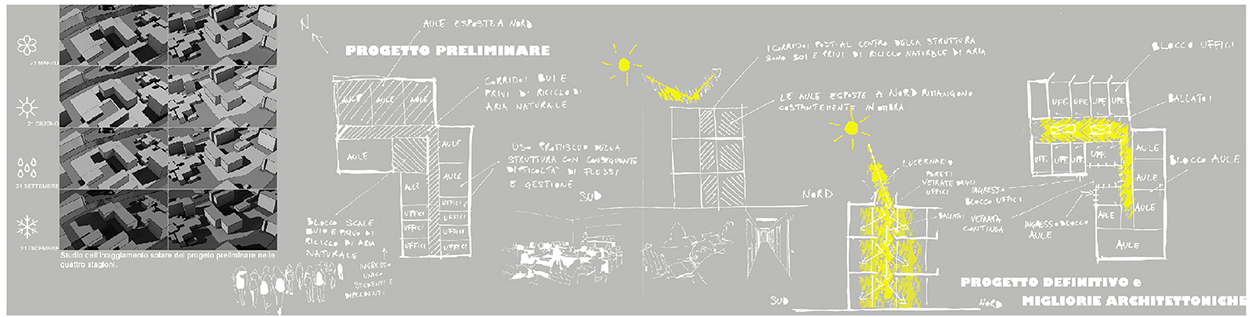 21 MARZO
21 GIUGNO
21 SETTEMBRE
21 DICEMBRE
Studio dell'irraggiamento solare del progeto preliminare nelle
quattro stagioni.
N
AULE ESPOSTE A NORD
PROGETTO PRELIMINARE
AULE AULE AULE
AULE
AULE
AULE
AULE
AULE
UFFICI
UFFICI
UFFICI
UFFICI
UFFICI
UFFICI
CORRIDOI BUI E
PRIVI DI RICICLO DI
ARIA NATURALE
USO PROMISCUO DELLA
STRUTTURA CON CONSEGUENTE
DIFFICOLTA' DI FLUSSI
E GESTIONE
BLOCCO SCALE
BUIO E PRIVO DI
RICICLO DI ARIA
NATURALE
INGRESSO
UNICO
STUDENTI E
DIPENDENTI
I CORRIDOI POSTI AL CENTRO DELLA STRUTTURA
SONO BUI E PRIVI DI RICICLO NATURALE DI ARIA
LE AULE ESPOSTE A NORD RIMANGONO
COSTANTEMENTE IN OMBRA
SUD
NORD
LUCERNARIO
PARETI
VETRATE DEGLI
UFFICI
BALLATOI
VETRATA
CONTINUA
INGRESSO
BLOCCO UFFICI
INGRESSO BLOCCO
AULE
SUD
NORD
BLOCCO UFFICI
BALLATOI
BLOCCO AULE
UFF. UFF. UFF. UFF.
UFF. UFF. UFF. UFF.
AULE
AULE
AULE
AULE
AULE
PROGETTO DEFINITIVO e
MIGLIORIE ARCHITETTONICHE